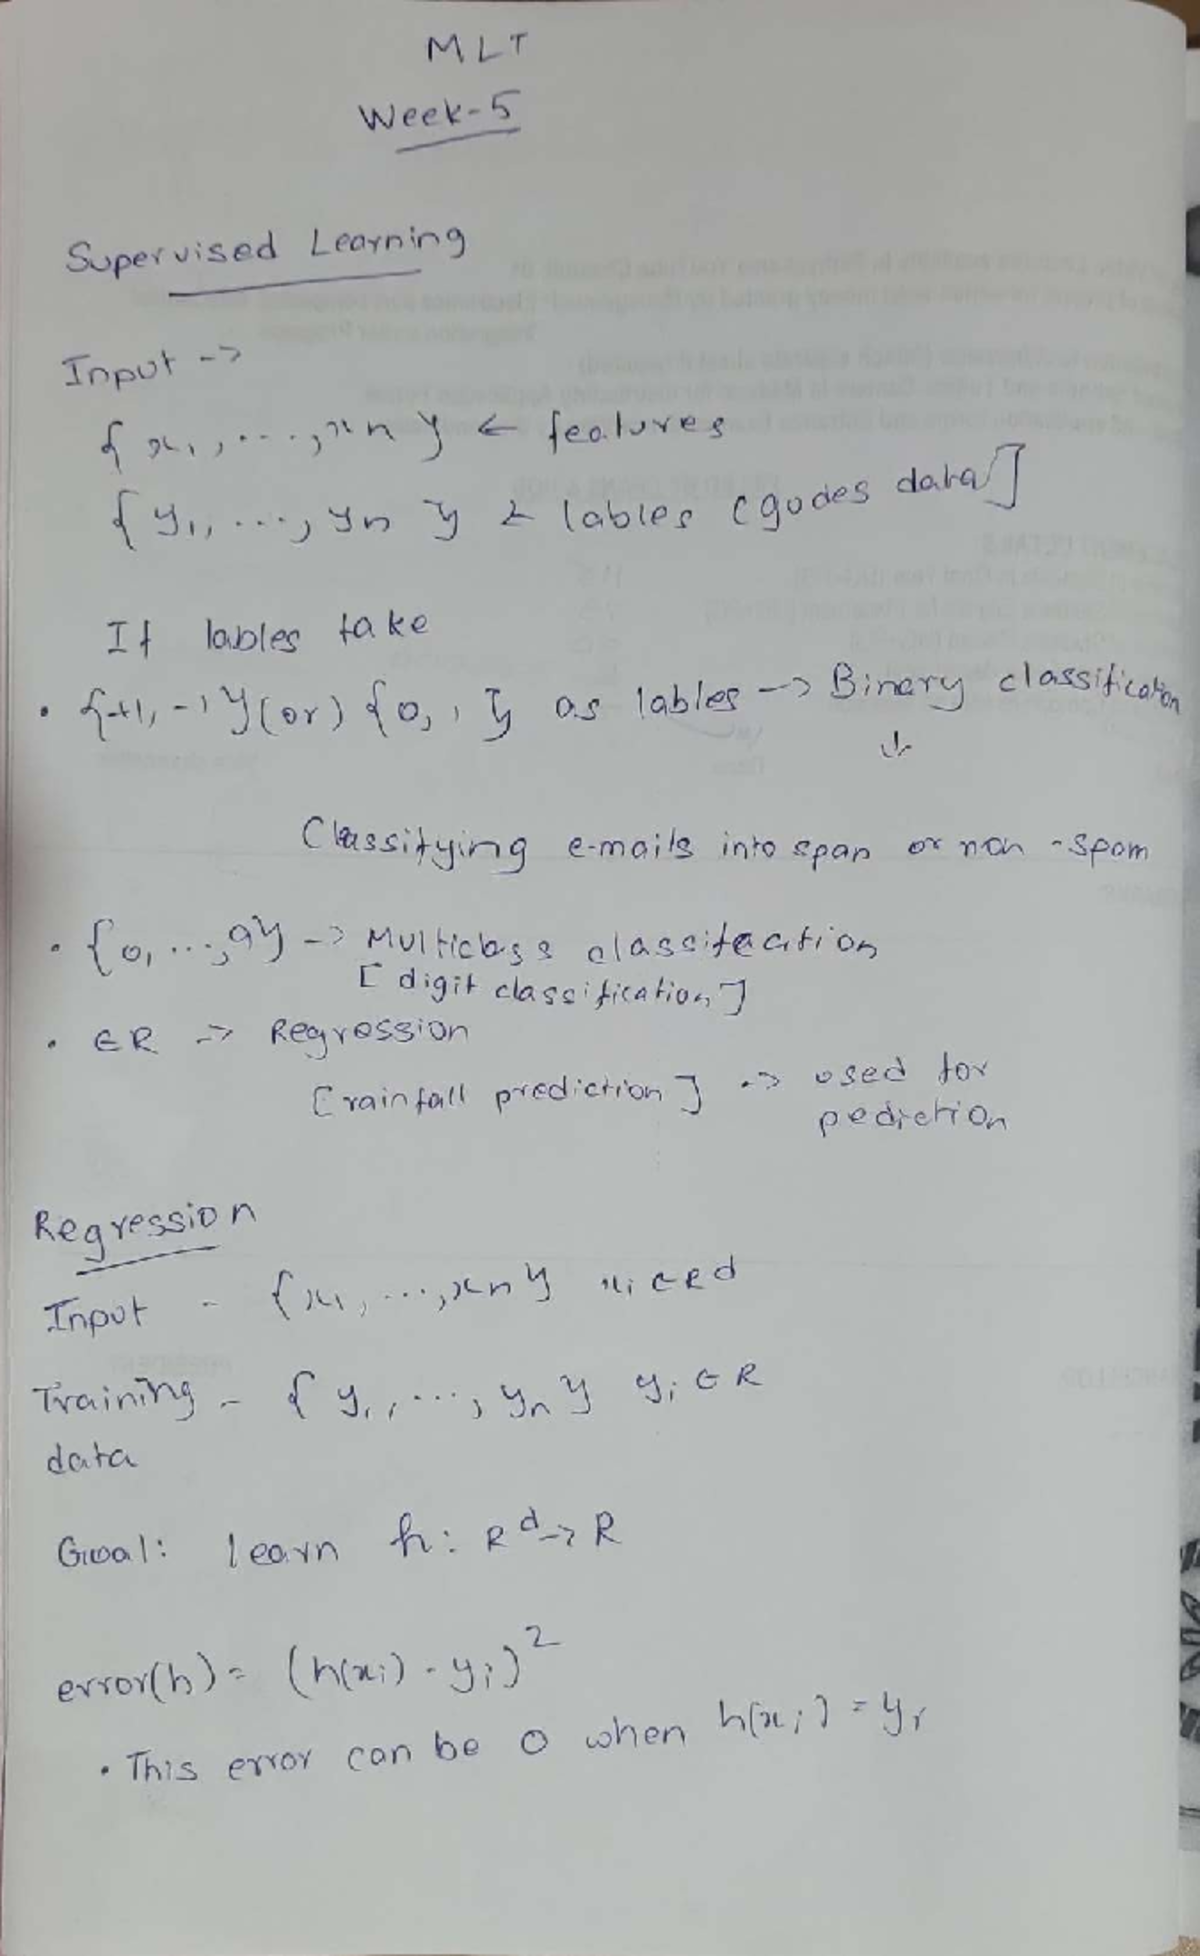 MLT
Week-5
Supervised Learning
Input ->
{x1, ..., xn} ← features
{y1, ..., yn} ← lables (gudes data]
If lables take
• {+1, -1} (or) {0, 1} as lables -> Binary classification
↓
Classifying e-mails into span or non-spam
• {0, ..., 9} -> Multiclass classifacation
[digit classification]
• ∈R -> Regression
[rainfall prediction] -> used for
pediction
Regression
Input - {x1, ..., xn} xi ∈ Rd
Training - {y1, ..., yn} yi ∈ R
data
Goal: learn h: R^d -> R
error(h) = (h(xi) - yi)^2
• This error can be 0 when h(xi) = yi